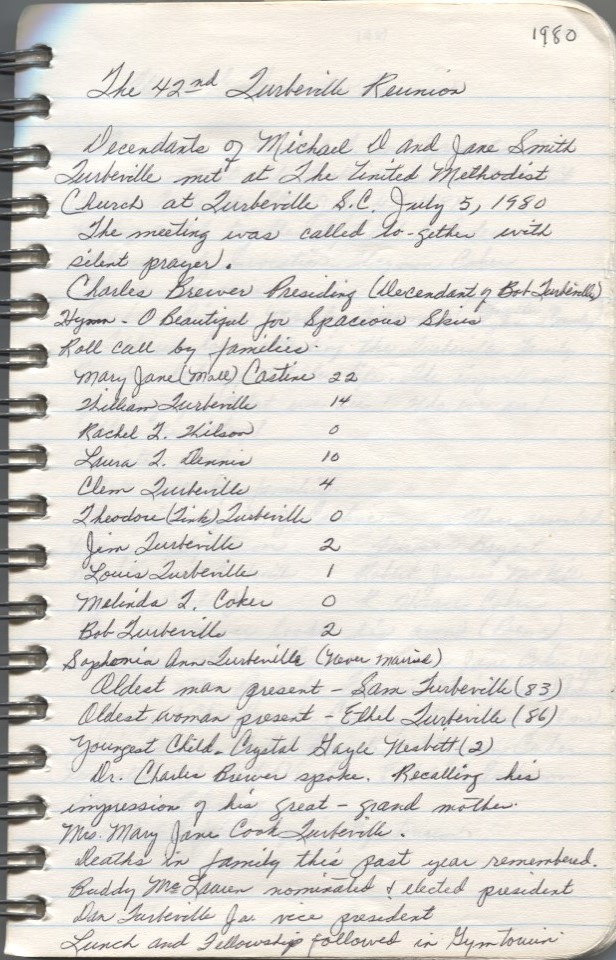 1980
The 42nd Turbeville Reunion
Decendants of Michael D and Jane Smith
Turbeville met at The United Methodist
Church at Turbeville S.C. July 5, 1980
The meeting was called to-gether with
silent prayer.
Charles Brewer Presiding (Decendant of Bob Turbeville)
Hymn - O Beautiful for Spacious Skies
Roll call by families.
Mary Jane (Moll) Castine 22
William Turbeville 14
Rachel T. Wilson 0
Laura T. Dennis 10
Clem Turbeville 4
Theodore (Tink) Turbeville 0
Jim Turbeville 2
Louis Turbeville 1
Melinda T. Coker 0
Bob Turbeville 2
Sophonia Ann Turbeville (Never Married)
Oldest man present - Sam Turbeville (83)
Oldest woman present - Ethel Turbeville (86)
Youngest Child - Crystal Gayle Nesbett (2)
Dr. Charles Brewer spoke. Recalling his
impression of his great-grand mother.
Mrs. Mary Jane Cook Turbeville.
Deaths in family this past year remembered.
Buddy McLauren nominated & elected president
Dan Turbeville Jr. vice president
Lunch and Fellowship followed in Gymtorium